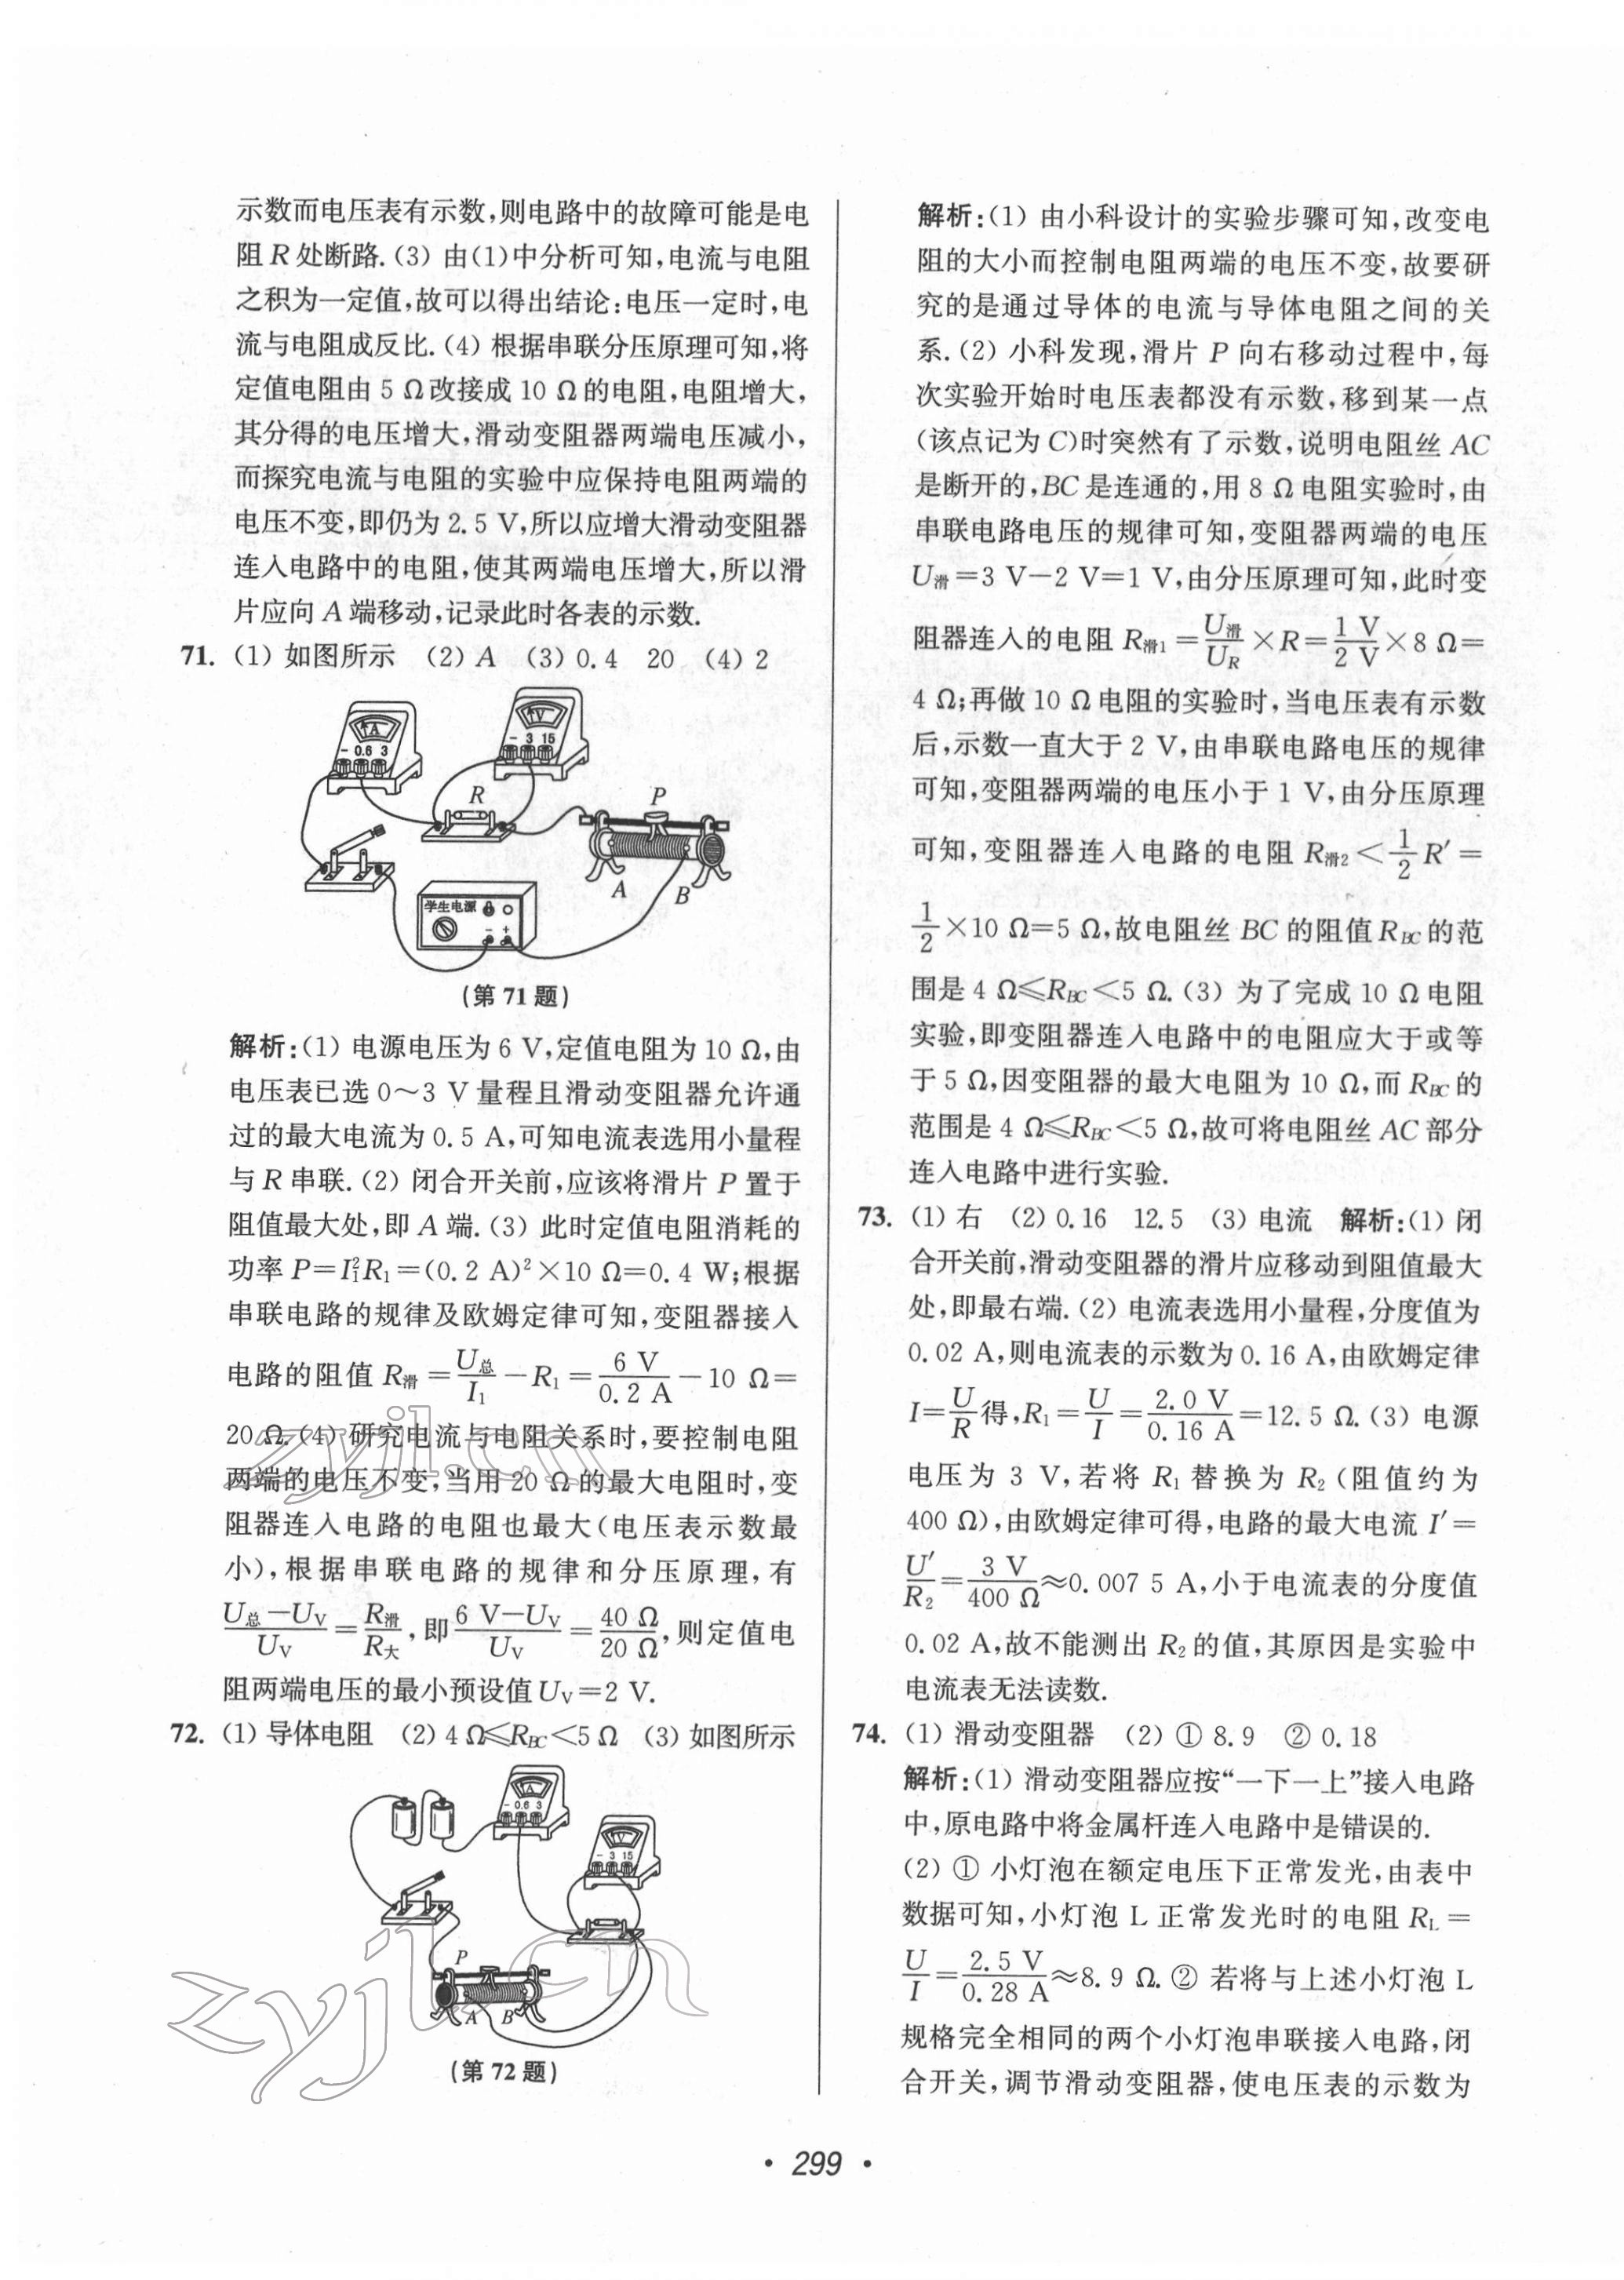 示数而电压表有示数,则电路中的故障可能是电
阻 R 处断路. (3) 由(1)中分析可知,电流与电阻
之积为一定值,故可以得出结论:电压一定时,电
流与电阻成反比. (4) 根据串联分压原理可知,将
定值电阻由 5 Ω改接成 10 Ω的电阻,电阻增大,
其分得的电压增大,滑动变阻器两端电压减小,
而探究电流与电阻的实验中应保持电阻两端的
电压不变,即仍为 2. 5 V,所以应增大滑动变阻器
连入电路中的电阻,使其两端电压增大,所以滑
片应向 A 端移动,记录此时各表的示数.
71. (1) 如图所示 (2) A (3) 0. 4 20 (4) 2
A
- 0.6 3
V
- 3 15
R
P
A
B
学生电源
- +
(第 71 题)
解析:(1) 电源电压为 6 V,定值电阻为 10 Ω,由
电压表已选 0～3 V 量程且滑动变阻器允许通
过的最大电流为 0. 5 A,可知电流表选用小量程
与 R 串联. (2) 闭合开关前,应该将滑片 P 置于
阻值最大处,即 A 端. (3) 此时定值电阻消耗的
功率 P=I₁²R₁=(0. 2 A)²×10 Ω=0. 4 W;根据
串联电路的规律及欧姆定律可知,变阻器接入
电路的阻值 R滑=U总/I₁-R₁=6 V/0. 2 A-10 Ω=
20 Ω. (4) 研究电流与电阻关系时,要控制电阻
两端的电压不变,当用 20 Ω的最大电阻时,变
阻器连入电路的电阻也最大(电压表示数最
小),根据串联电路的规律和分压原理,有
(U总-U_V)/U_V=R滑/R大,即(6 V-U_V)/U_V=40 Ω/20 Ω,则定值电
阻两端电压的最小预设值 U_V=2 V.
72. (1) 导体电阻 (2) 4 Ω≤R_BC<5 Ω (3) 如图所示
A
- 0.6 3
V
- 3 15
P
A
B
(第 72 题)
解析:(1) 由小科设计的实验步骤可知,改变电
阻的大小而控制电阻两端的电压不变,故要研
究的是通过导体的电流与导体电阻之间的关
系. (2) 小科发现,滑片 P 向右移动过程中,每
次实验开始时电压表都没有示数,移到某一点
(该点记为 C)时突然有了示数,说明电阻丝 AC
是断开的,BC 是连通的,用 8 Ω电阻实验时,由
串联电路电压的规律可知,变阻器两端的电压
U滑=3 V-2 V=1 V,由分压原理可知,此时变
阻器连入的电阻 R滑1=U滑/U_R×R=1 V/2 V×8 Ω=
4 Ω;再做 10 Ω电阻的实验时,当电压表有示数
后,示数一直大于 2 V,由串联电路电压的规律
可知,变阻器两端的电压小于 1 V,由分压原理
可知,变阻器连入电路的电阻 R滑2<1/2 R′=
1/2×10 Ω=5 Ω,故电阻丝 BC 的阻值 R_BC的范
围是 4 Ω≤R_BC<5 Ω. (3) 为了完成 10 Ω电阻
实验,即变阻器连入电路中的电阻应大于或等
于 5 Ω,因变阻器的最大电阻为 10 Ω,而 R_BC的
范围是 4 Ω≤R_BC<5 Ω,故可将电阻丝 AC 部分
连入电路中进行实验.
73. (1) 右 (2) 0. 16 12. 5 (3) 电流 解析:(1) 闭
合开关前,滑动变阻器的滑片应移动到阻值最大
处,即最右端. (2) 电流表选用小量程,分度值为
0. 02 A,则电流表的示数为 0. 16 A,由欧姆定律
I=U/R得,R₁=U/I=2. 0 V/0. 16 A=12. 5 Ω. (3) 电源
电压为 3 V,若将 R₁ 替换为 R₂(阻值约为
400 Ω),由欧姆定律可得,电路的最大电流 I′=
U′/R₂=3 V/400 Ω≈0. 007 5 A,小于电流表的分度值
0. 02 A,故不能测出 R₂的值,其原因是实验中
电流表无法读数.
74. (1) 滑动变阻器 (2) ① 8. 9 ② 0. 18
解析:(1) 滑动变阻器应按“一下一上”接入电路
中,原电路中将金属杆连入电路中是错误的.
(2) ① 小灯泡在额定电压下正常发光,由表中
数据可知,小灯泡 L 正常发光时的电阻 R_L=
U/I=2. 5 V/0. 28 A≈8. 9 Ω. ② 若将与上述小灯泡 L
规格完全相同的两个小灯泡串联接入电路,闭
合开关,调节滑动变阻器,使电压表的示数为
· 299 ·
zyjl.cn
zyjl.cn